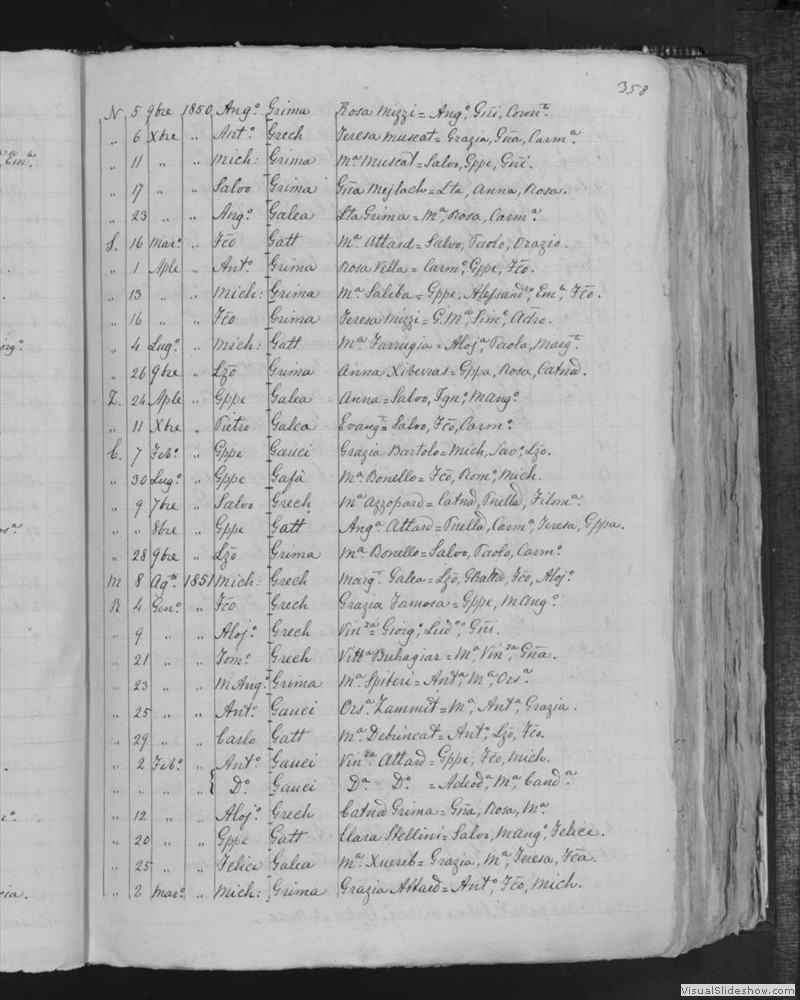 358
N 5 9bre 1850 Ang.º Grima Rosa Mizzi = Ang.º, Gñi, Coron.ta
„ 6 Xbre „ Ant.º Grech Teresa Muscat = Grazia, Gña, Carm.a
„ 11 „ „ Mich: Grima M.a Muscat = Salvo, Gppe, Gñi.
„ 17 „ „ Salvo Grima Gña Mejlach = Lta, Anna, Rosa.
„ 23 „ „ Ang.º Galea Lta Grima = M.a, Rosa, Carm.a
S. 16 Mar.º „ Fcõ Gatt M.a Attard = Salvo, Paolo, Orazio.
„ 1 Aple „ Ant.º Grima Rosa Vella = Carm.º, Gppe, Fcõ.
„ 13 „ „ Mich: Grima M.a Saliba = Gppe, Alessand.ro, Em.le, Fcõ.
„ 16 „ „ Fcõ Grima Teresa Mizzi = G. M.a, Sim.e,
„ 4 Lug.º „ Mich: Gatt M.a Farrugia = Aloj.a, Paola, Marg.ta
„ 26 9bre „ Lzõ Grima Anna Xiberras = Gppa, Rosa, Catnã.
Z. 24 Aple „ Gppe Galea Anna = Salvo, Ign.º, M Ang.º
„ 11 Xbre „ Pietro Galea Evang.ta = Salvo, Fcõ, Carm.º
C. 7 Feb.º „ Gppe Gauci Grazia Bartolo = Mich, Sav.º, Lzõ.
„ 30 Lug.º „ Gppe Gafà M.a Bonello = Fcõ, Rom.º, Mich.
„ 9 7bre „ Salvo Grech M.a Azzopard = Catnã, Pnella, Filom.a
„ „ 8bre „ Gppe Gatt Ang.a Attard = Pnella, Carm.a, Teresa, Gppa.
„ 28 9bre „ Lzõ Grima M.a Bonello = Salvo, Paolo, Carm.º
M 8 Ag.to 1851 Mich: Grech Marg.ta Galea = Lzõ, Gbatta, Fcõ, Aloj.º
R 4 Gen.º „ Fcõ Grech Grazia Famosa = Gppe, M Ang.º
„ 9 „ „ Aloj.º Grech Vin.za = Giorg.º, Lud.co, Gñi.
„ 21 „ „ Tom.º Grech Vitt.a Buhagiar = M.a, Vin.za, Gña.
„ 23 „ „ M Ang.º Grima M.a Spiteri = Ant.a, M.a Ors.a
„ 25 „ „ Ant.º Gauci Ors.a Zammit = M.a, Ant.a, Grazia.
„ 29 „ „ Carlo Gatt M.a Debrincat = Ant.º, Lzõ, Fcõ.
„ 2 Feb.º „ Ant.º Gauci Vin.za Attard = Gppe, Fcõ, Mich.
„ „ „ „ D.º Gauci D.a D.º = Adeod.a, M.a, Cand.a
„ 12 „ „ Aloj.º Grech Catnã Grima = Gña, Rosa, M.a
„ 20 „ „ Gppe Gatt Clara Stellini = Salvo, M Ang.º, Felice.
„ 25 „ „ Felice Galea M.a Xuereb = Grazia, M.a Teresa, Fcã.
„ 2 Mar.º „ Mich: Grima Grazia Attard = Ant.º, Fcõ, Mich.
VisualSlideshow.com